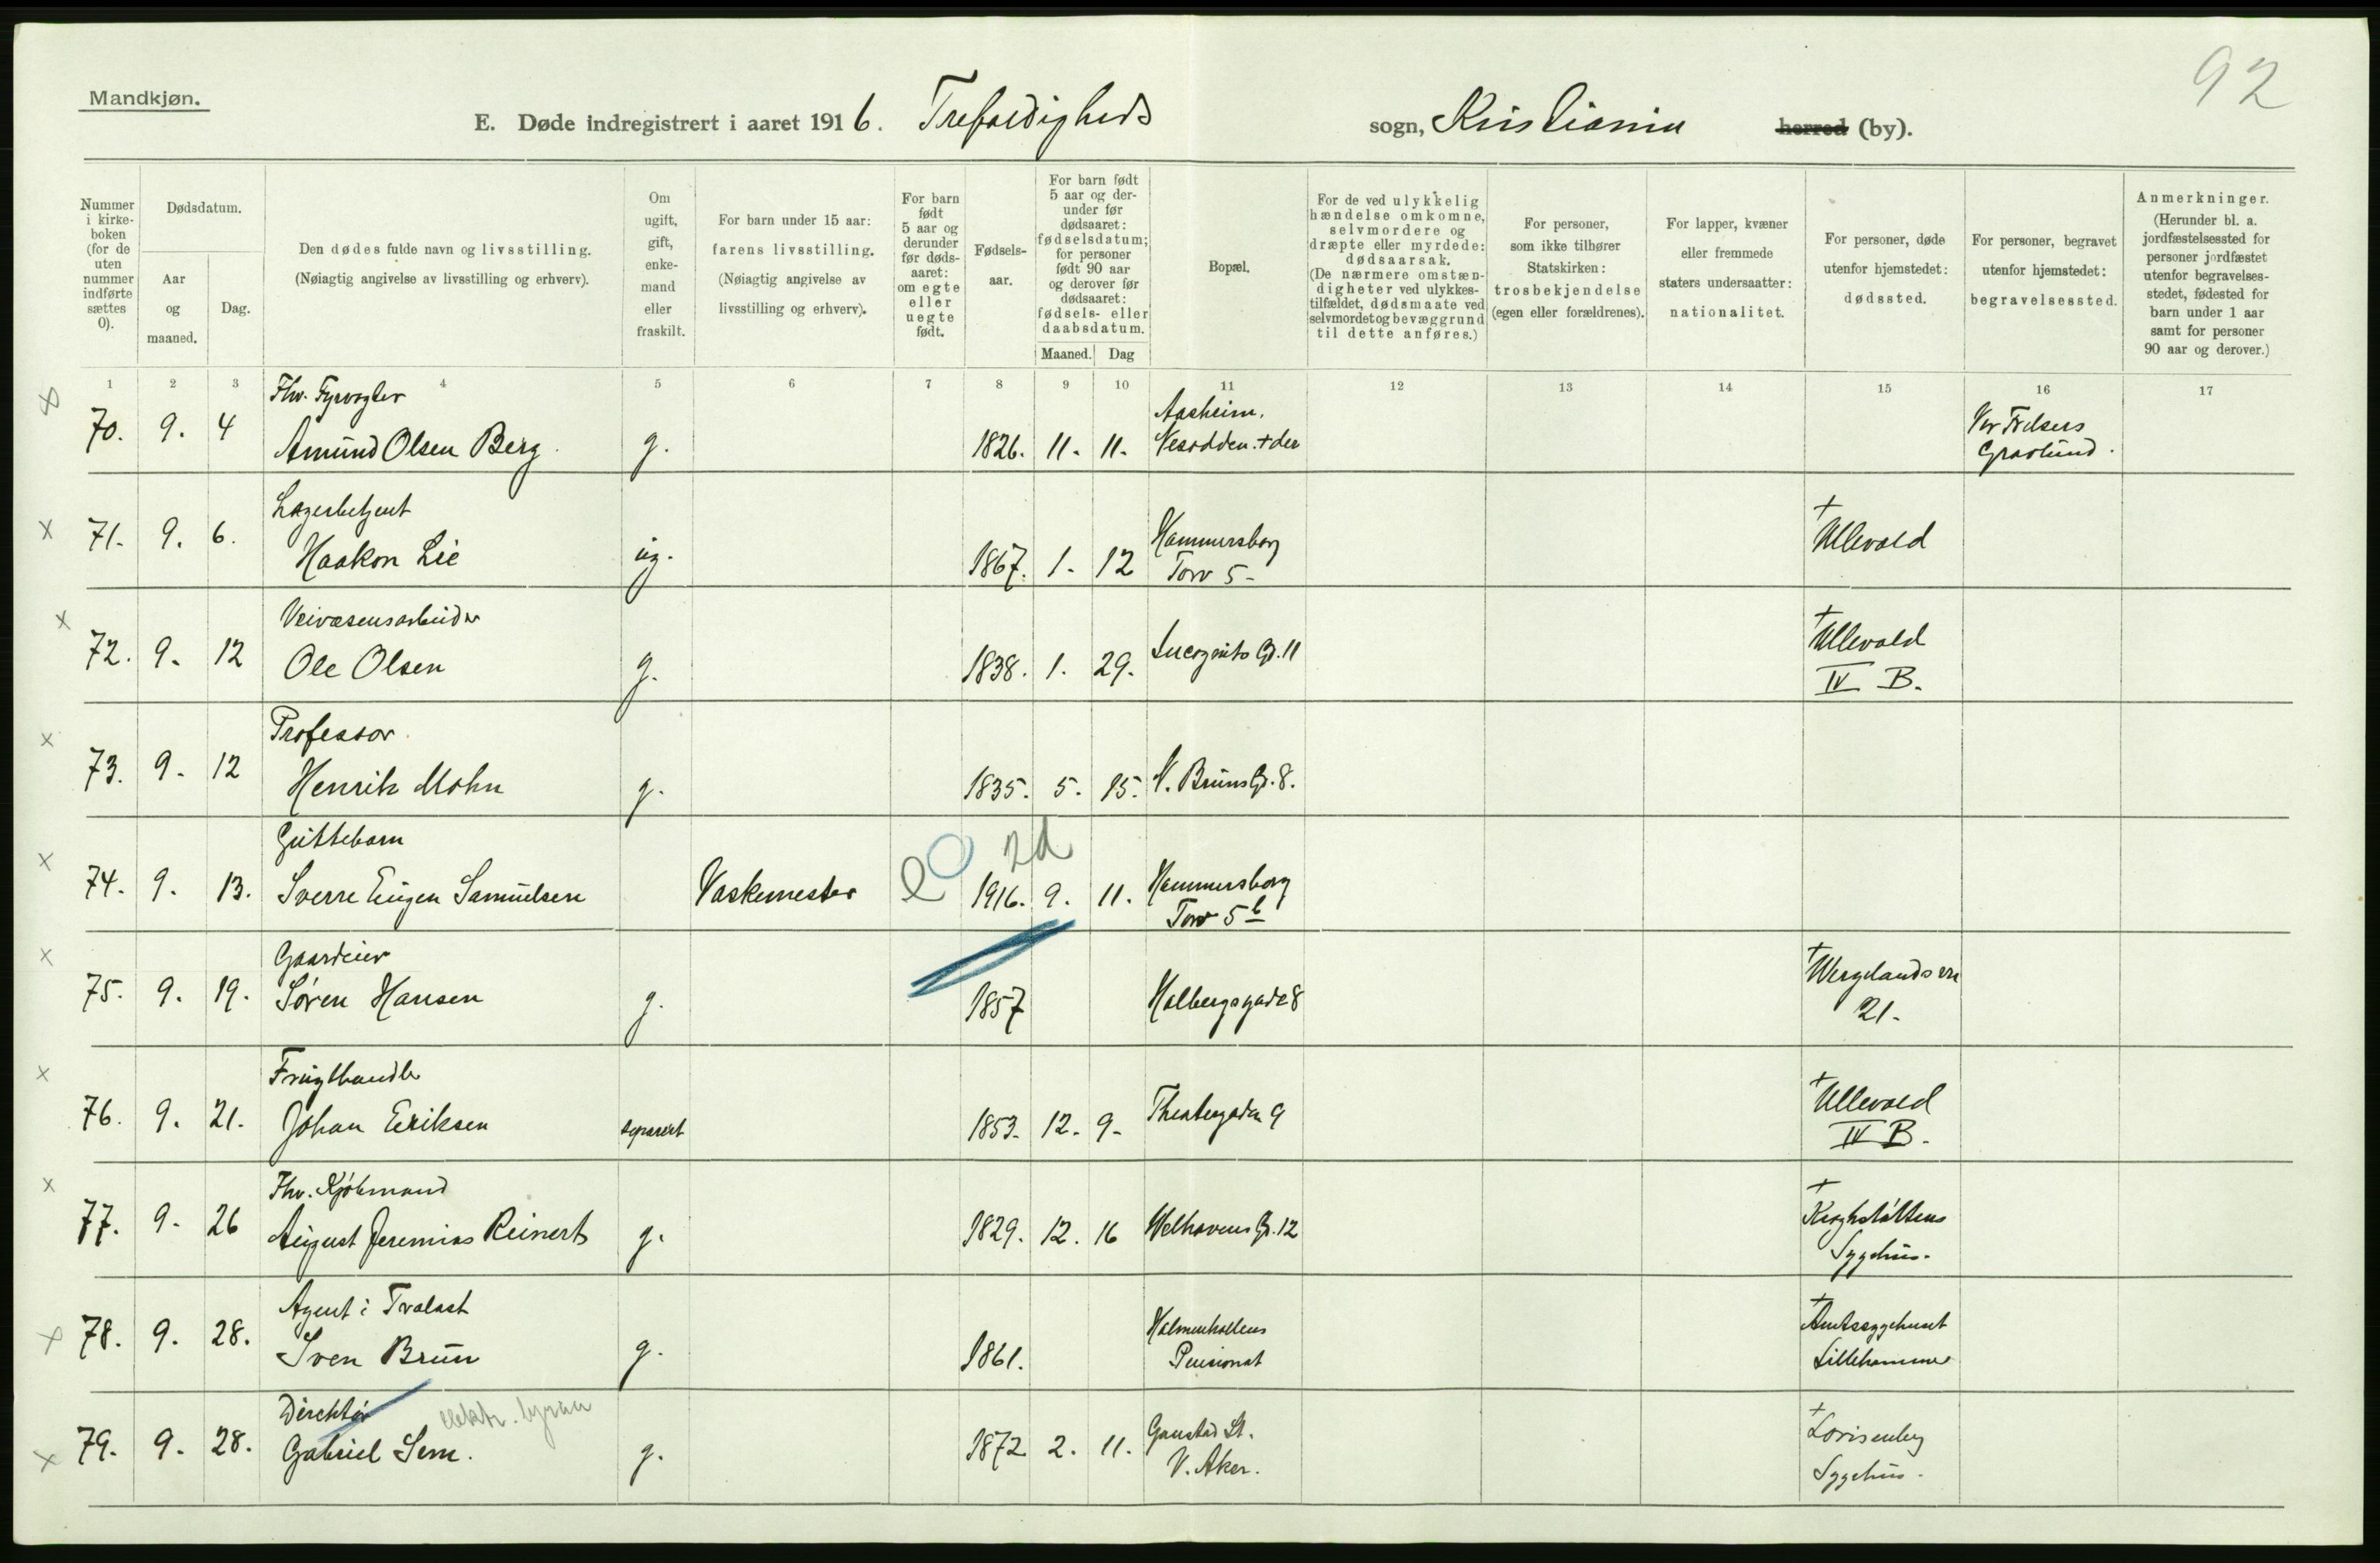 92
Mandkjøn.
E. Døde indregistrert i aaret 1916. Trefoldigheds sogn, Kristiania herred (by).
Nummer i kirkeboken (for de uten nummer indførte sættes 0).
Dødsdatum.
Aar og maaned.
Dag.
Den dødes fulde navn og livsstilling.
(Nøiagtig angivelse av livsstilling og erhverv).
Om ugift, gift, enkemand eller fraskilt.
For barn under 15 aar:
farens livsstilling.
(Nøiagtig angivelse av livsstilling og erhverv).
For barn født 5 aar og derunder før dødsaaret: om egte eller uegte født.
Fødselsaar.
For barn født 5 aar og derunder før dødsaaret: fødselsdatum; for personer født 90 aar og derover før dødsaaret: fødsels- eller daabsdatum.
Maaned. Dag
Bopæl.
For de ved ulykkelig hændelse omkomne, selvmordere og dræpte eller myrdede: dødsaarsak.
(De nærmere omstændigheter ved ulykkestilfældet, dødsmaate ved selvmordet og bevæggrund til dette anføres.)
For personer, som ikke tilhører Statskirken: trosbekjendelse (egen eller forældrenes).
For lapper, kvæner eller fremmede staters undersaatter: nationalitet.
For personer, døde utenfor hjemstedet: dødssted.
For personer, begravet utenfor hjemstedet: begravelsessted.
Anmerkninger.
(Herunder bl. a. jordfæstelsessted for personer jordfæstet utenfor begravelsesstedet, fødested for barn under 1 aar samt for personer 90 aar og derover.)
1 2 3 4 5 6 7 8 9 10 11 12 13 14 15 16 17
Fhv. Fyrvogter Aasheim. Vor Frelsers
70. 9. 4 Amund Olsen Berg. g. 1826. 11. 11. Nesodden. + der Gravlund.
Lagerbetjent Hammersborg +
71. 9. 6. Haakon Lie ug. 1867. 1. 12 Torv 5 Ullevold
Veivæsensarbeider + Ullevold
72. 9. 12 Ole Olsen g. 1838. 1. 29. Incognito Gd. 11 IV B.
Professor
73. 9. 12 Henrik Mohn g. 1835. 5. 15. N. Bruns Gd. 8.
Guttebarn 2d Hammersborg
74. 9. 13. Sverre Eugen Samuelsen Vaskemester e 1916. 9. 11. Torv 5b
Gaardeier + Wergelandsvn
75. 9. 19. Søren Hansen g. 1857 Holbergsgade 8 21.
Frugthandler + Ullevold
76. 9. 21. Johan Eriksen separert 1853. 12. 9. Theatergaden 9 IV B.
Fhv. Kjøbmand + Kroghstøttens
77. 9. 26 August Jeremias Reinert g. 1829. 12. 16 Welhavens Gd. 12 Sygehus.
Agent i Trælast Holmenkollens + Amtssygehuset
78. 9. 28. Sven Brun g. 1861. Pensionat Lillehammer
Direktør elektr. byraa Gaustad St. + Lovisenberg
79. 9. 28. Gabriel Sem. g. 1872 2. 11. V. Aker. Sygehus.